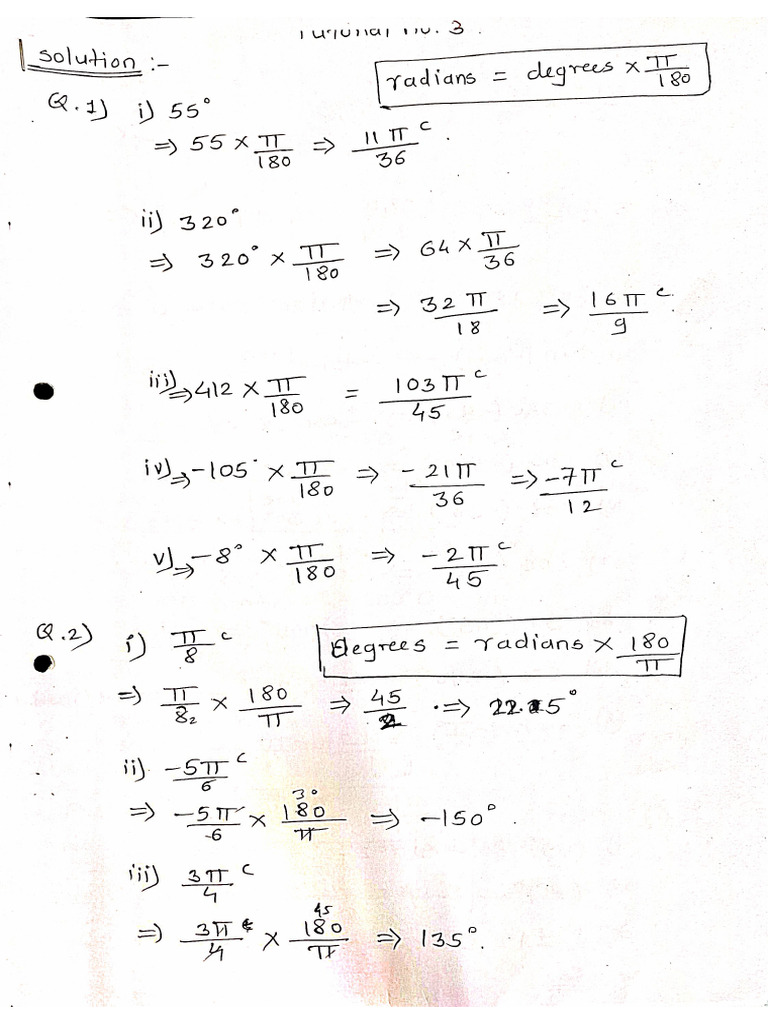 Tutorial no. 3.
Solution :-
radians = degrees × π/180
Q.1) i) 55°
⇒ 55 × π/180 ⇒ 11π/36 ᶜ.
ii) 320°
⇒ 320° × π/180 ⇒ 64 × π/36
⇒ 32π/18 ⇒ 16π/9 ᶜ.
iii) ⇒ 412 × π/180 = 103π/45 ᶜ
iv) ⇒ -105° × π/180 ⇒ -21π/36 ⇒ -7π/12 ᶜ
v) ⇒ -8° × π/180 ⇒ -2π/45 ᶜ
Q.2) i) π/8 ᶜ
Degrees = radians × 180/π
⇒ π/8 2 × 180/π ⇒ 45/2 ⇒ 22.5°
ii) -5π/6 ᶜ
⇒ -5π/6 × 180/π 30 ⇒ -150°.
iii) 3π/4 ᶜ
⇒ 3π/4 ᶜ × 180/π 45 ⇒ 135°.